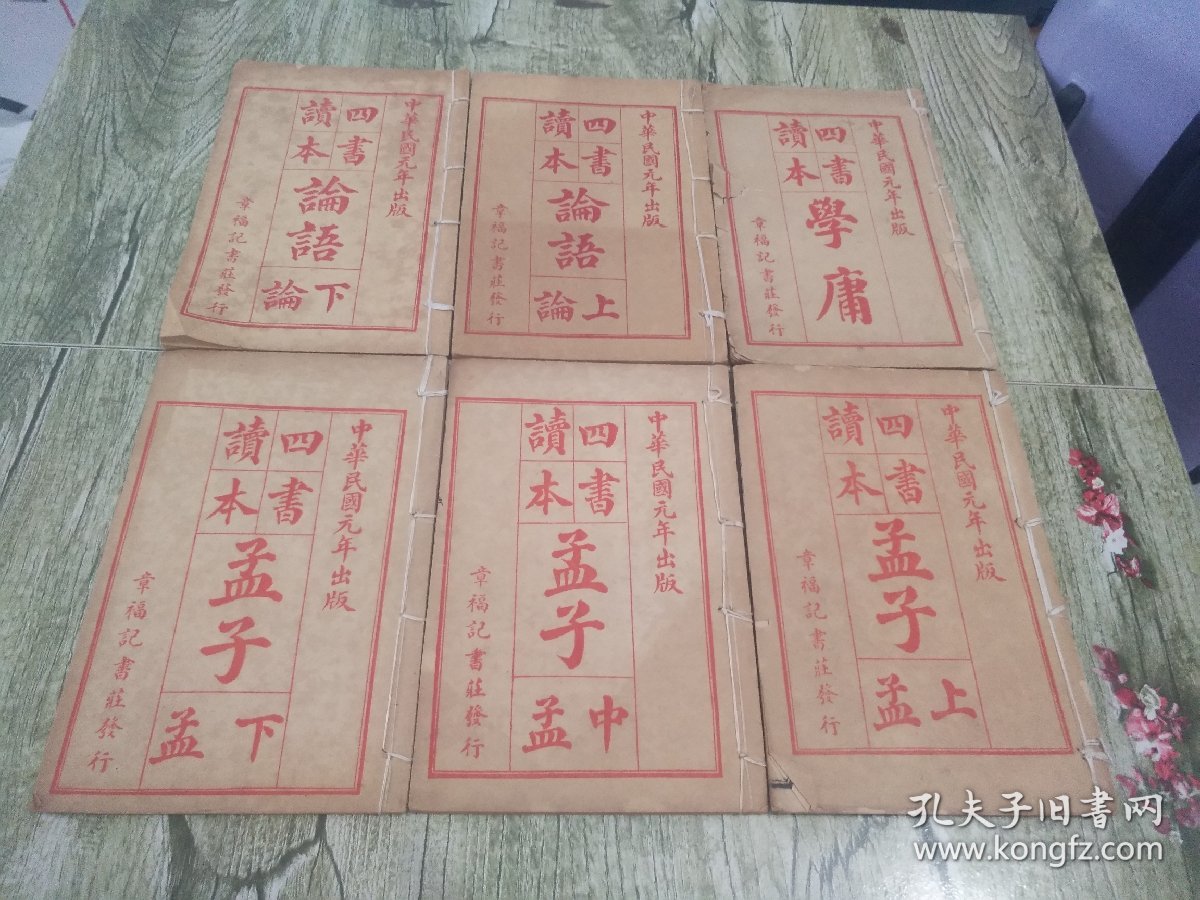 中華民國元年出版
四書
讀本
學庸
章福記書莊發行
中華民國元年出版
四書
讀本
論語
上論
章福記書莊發行
中華民國元年出版
四書
讀本
論語
下論
章福記書莊發行
中華民國元年出版
四書
讀本
孟子
上孟
章福記書莊發行
中華民國元年出版
四書
讀本
孟子
中孟
章福記書莊發行
中華民國元年出版
四書
讀本
孟子
下孟
章福記書莊發行
孔夫子旧书网
www.kongfz.com